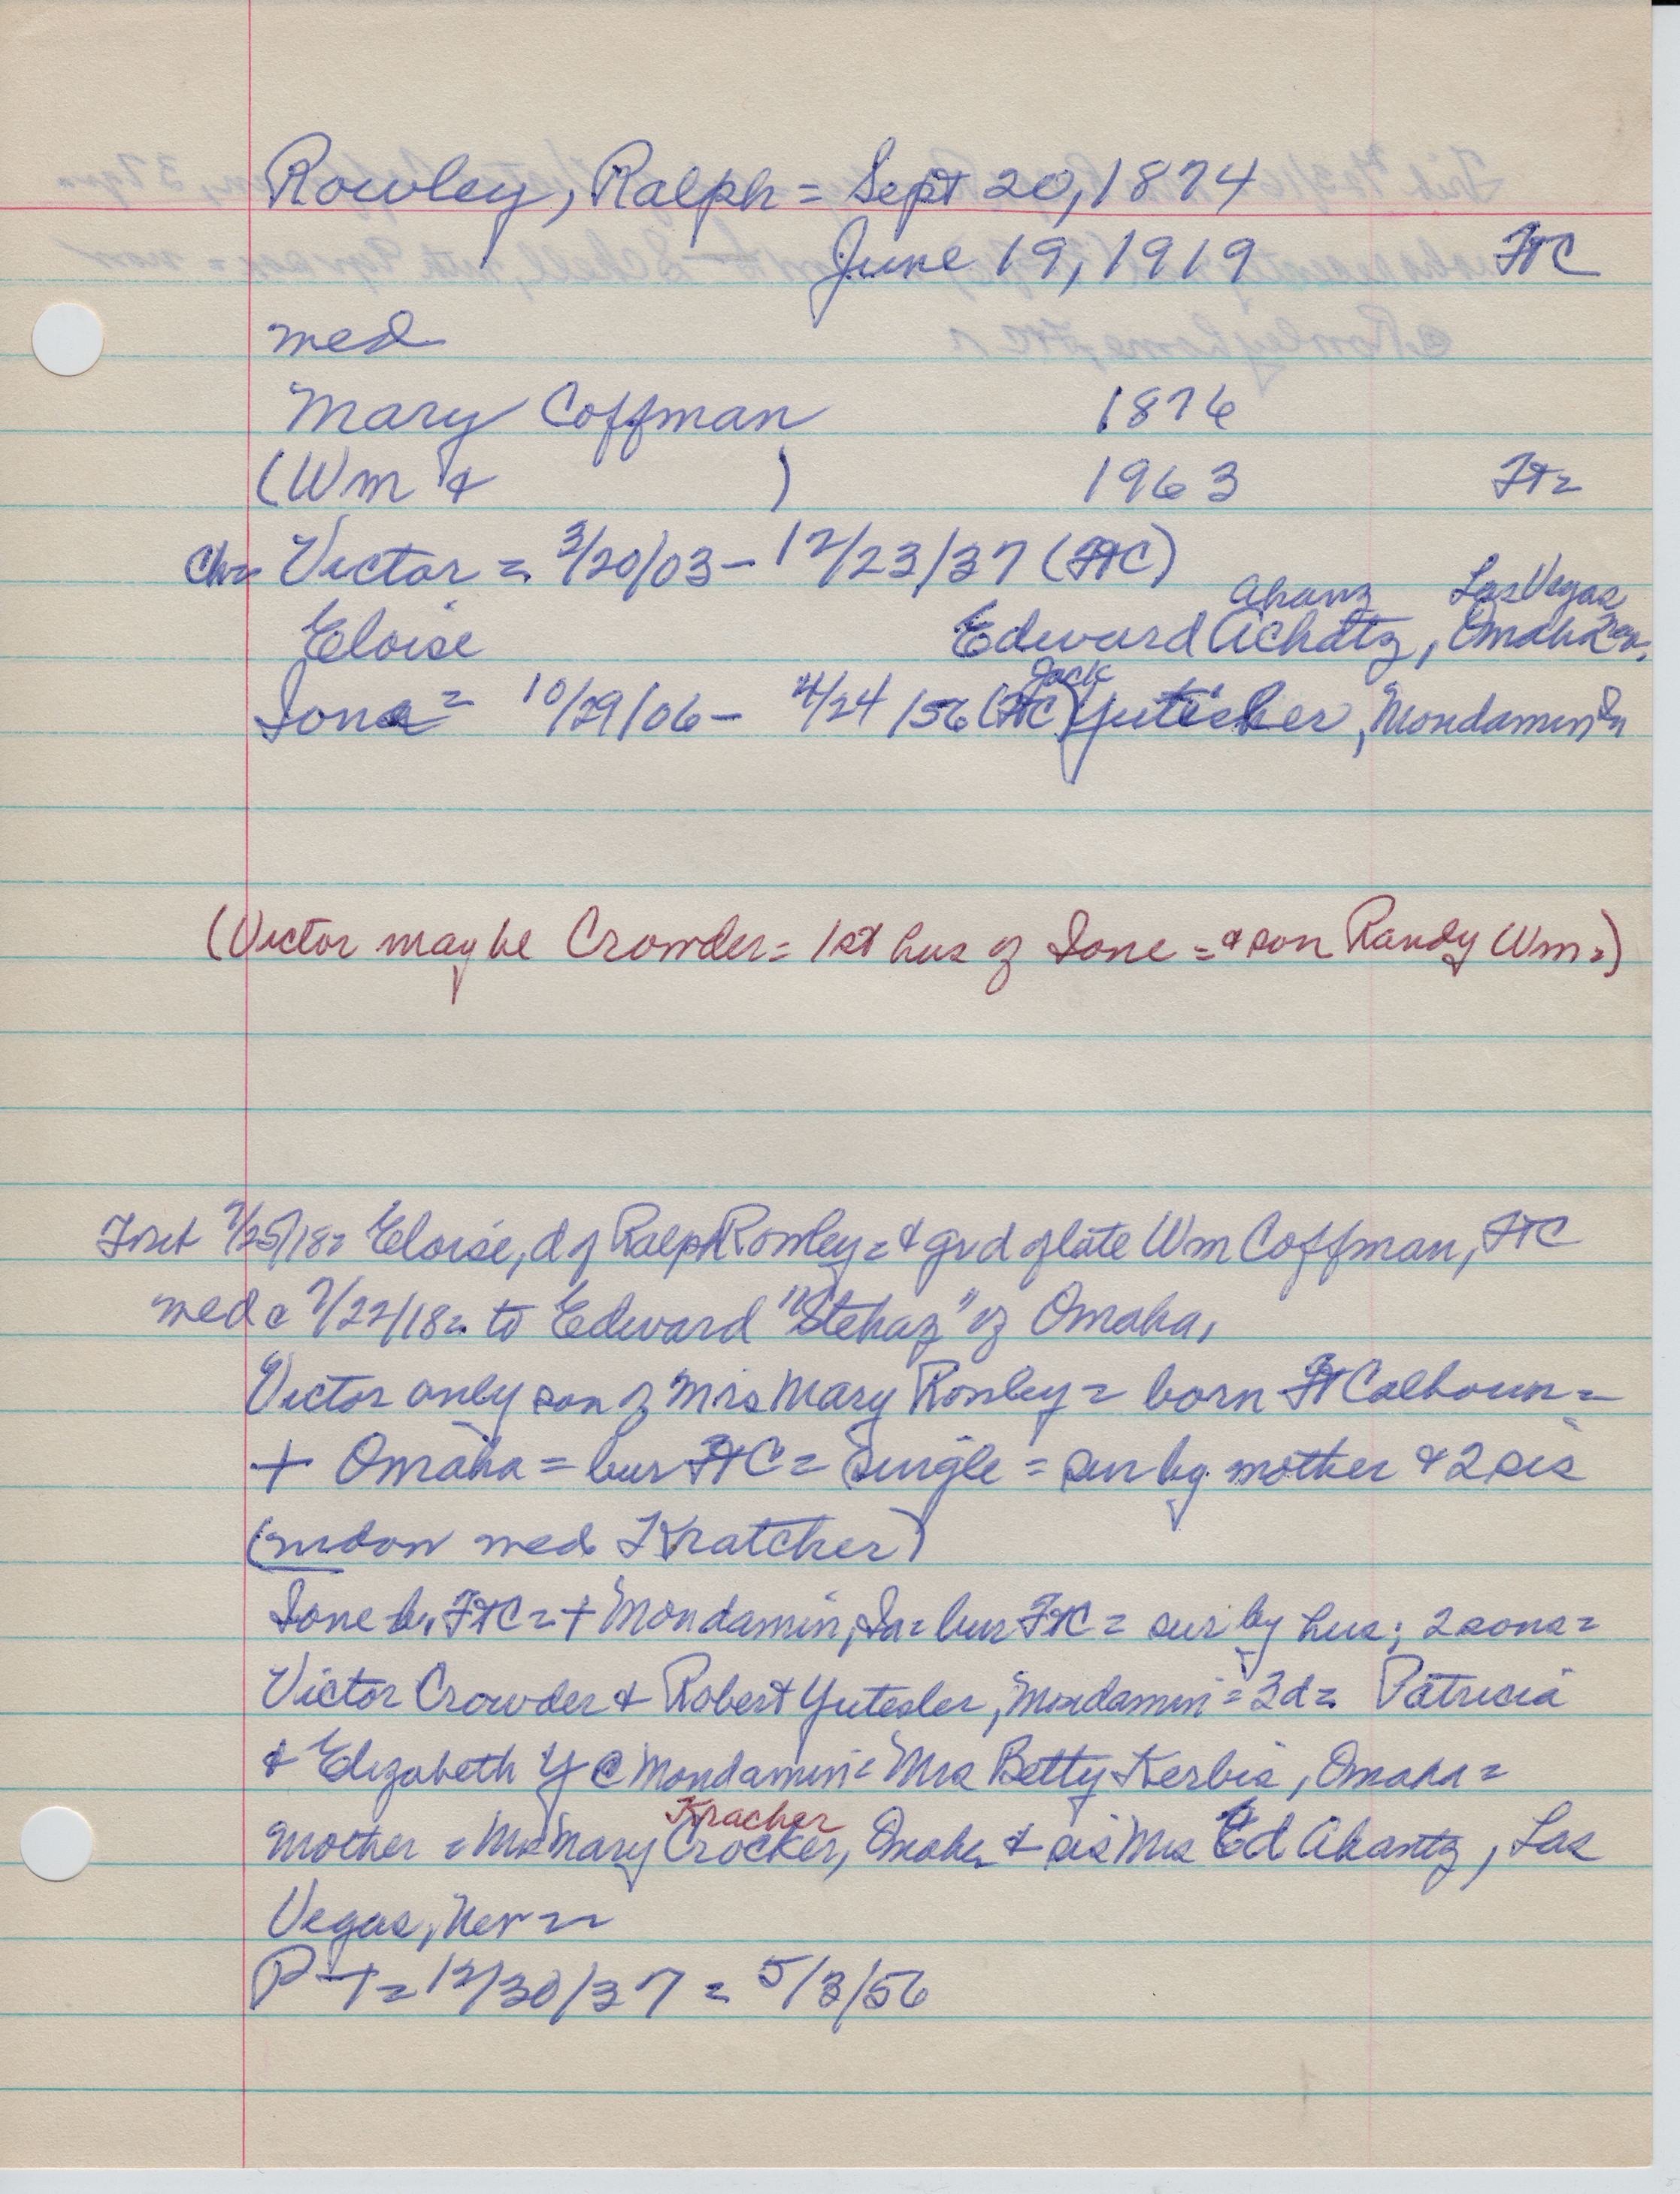 Rowley, Ralph = Sept 20, 1874
June 19, 1919 FtC
med
Mary Coffman 1876
(Wm & ) 1963 Ft=
Ch= Victor = 3/20/03 - 12/23/37 (FtC)
Ahanz Las Vegas
Eloise Edward Achatz, Omaha Nev.
Jack
Ione = 10/29/06 - 4/24/56 (FtC) Yutesler, Mondamin Ia
(Victor may be Crowder = 1st hus of Ione = & son Randy Wm =)
7/25/18 = Eloise, d of Ralph Rowley = & grd of late Wm Coffman, FtC
med c 7/22/18 = to Edward "Stehaz" of Omaha,
Victor only son of Mrs Mary Rowley = born Ft Calhoun =
+ Omaha = bur FtC = Single = sur by mother & 2 sis
(widow med Kratcher)
Ione b. FtC = + Mondamin, Ia = bur FtC = sur by hus; 2 sons =
Victor Crowder & Robert Yutesler, Mondamin = 3d = Patricia
& Elizabeth Y @ Mondamin = Mrs Betty Kerbis, Omaha =
Kracher
mother = Mrs Mary Crocker, Omaha & sis Mrs Ed Ahantz, Las
Vegas, Nev =
P-T = 12/30/37 = 5/3/56